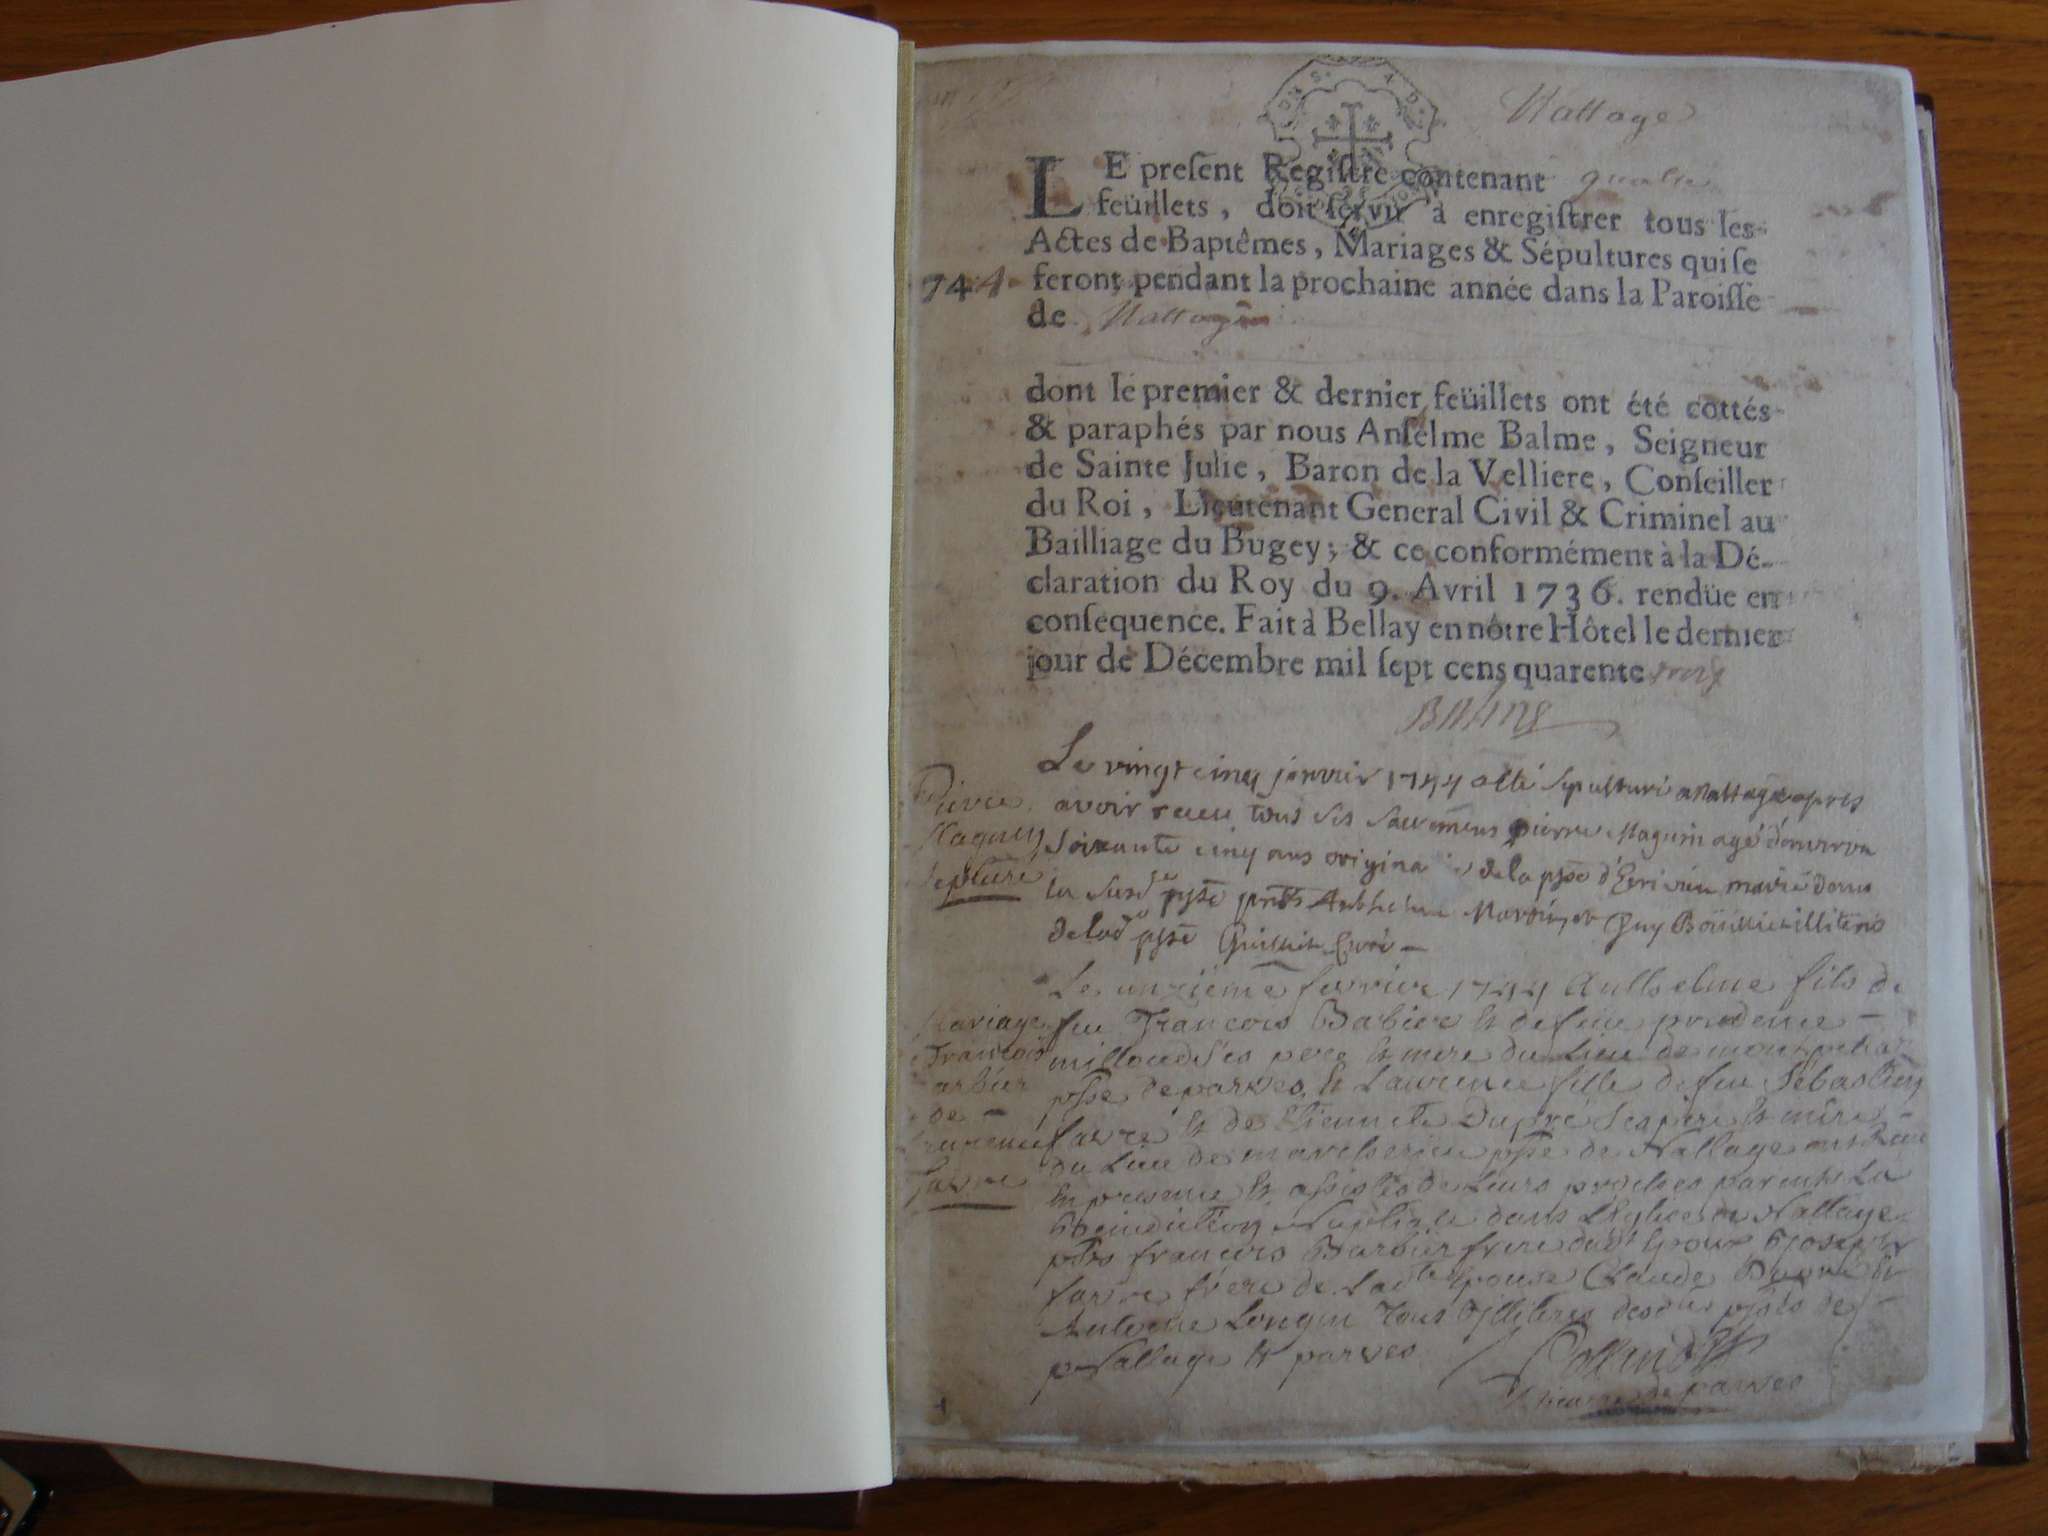 Nattage
LE preſent Regiſtre contenant quatre
feüillets, doit ſervir à enregiſtrer tous les
Actes de Baptêmes, Mariages & Sépultures qui ſe
744 feront pendant la prochaine année dans la Paroiſſe
de Nattage
dont le premier & dernier feüillets ont été cottés
& paraphés par nous Anſelme Balme, Seigneur
de Sainte Julie, Baron de la Velliere, Conſeiller
du Roi, Lieutenant General Civil & Criminel au
Bailliage du Bugey; & ce conformément à la Dé-
claration du Roy du 9. Avril 1736. rendüe en
conſequence. Fait à Bellay en nôtre Hôtel le dernier
jour de Décembre mil ſept cens quarente trois
Balme
Le vingt cinq janvier 1744 a été sepulturé a Nattage apres
Pierre avoir receu tous ses sacremens pierre Maguin agé d'environ
Maguin soixante cinq ans de la psse marié dans
sepulture la susd psse Anthelme Guy illiterés
de lad psse Curé
Le unzieme fevrier 1744 Anthelme fils de
Mariage feu Francois Barbier & de feue prudence
Francois ses pere & mere du Lieu de
psse de parves & Laurence fille de feu Sébastien
de favre & de Etiennete Dupré ses pere & mere
du Lieu de psse de Nattage ont Receu
favre en presence & assistés de Leurs proches parents La
Benediction Nuptiale dans L'Eglise de Nattage
pnts francois Barbier frere dud Epoux & joseph
favre frere de Ladte Epouse Claude Dupré &
Antoine Longin Tous illiteres des psses de
Nattage & parves
vicaire de parves